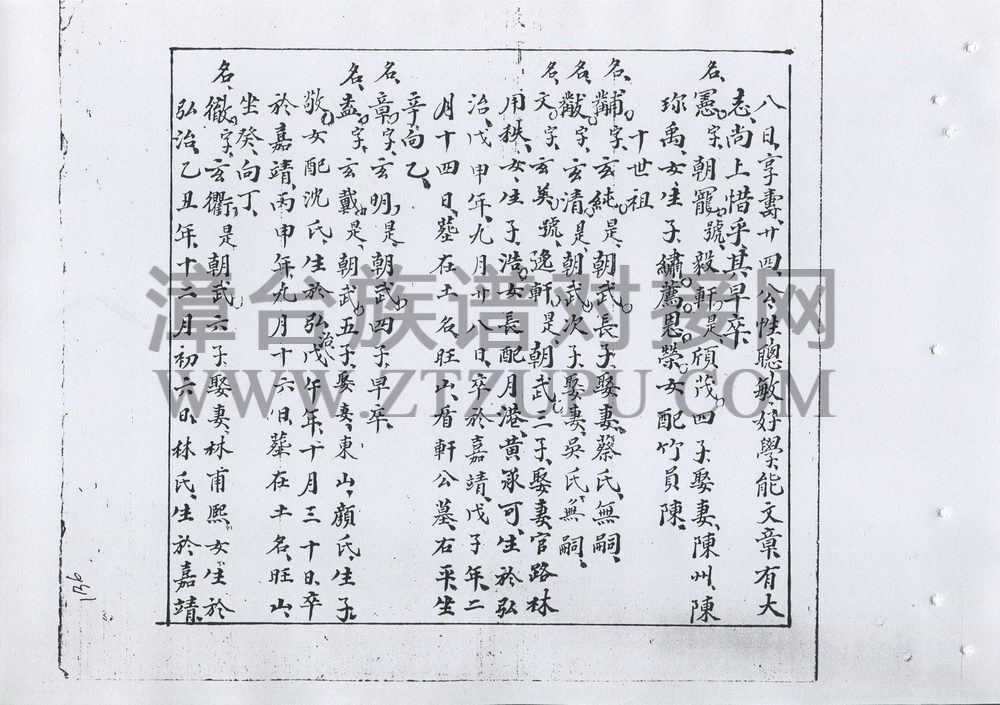 八日、享壽、廿四公、性聰敏、好學、能文章、有大
志、尚上惜乎、其早卒、
名、憲、字、朝寵、號、毅軒、是、頎茂、四子、娶妻、陳州、陳
珎禹、女、生子、繡、薦、恩、榮、女配竹員陳、
十世祖
名、黼、字、玄純、是、朝武、長子、娶妻、蔡氏、無嗣、
名、黻、字、玄清、是、朝武、次子、娶妻、吳氏、無嗣、
名、文、字、玄英、號、逸軒、是、朝武、三子、娶妻、官路林
用秩、女、生子、浩、女長配月港、黃家可、生於弘
治、戊申年、九月廿八日、卒於嘉靖、戊子年、二
月十四日、塟在土名、旺山、眉軒公墓、右平、坐
辛向乙、
名、章、字、玄明、是、朝武、四子、早卒、
名、盍、字、玄戴、是、朝武、五子、娶妻、東山、顏氏、生子、
敬、女配沈氏、生於弘治、戊午年、十月三十日、卒
於嘉靖、丙申年、九月十六日、塟在土名、旺山、
坐癸、向丁、
名、徹、字、玄衢、是朝武、六子、娶妻、林甫熙、女、生於
弘治、乙丑年、十二月初六日、林氏、生於嘉靖、
196.
漳台族谱对接网
WWW.ZTZUPU.COM